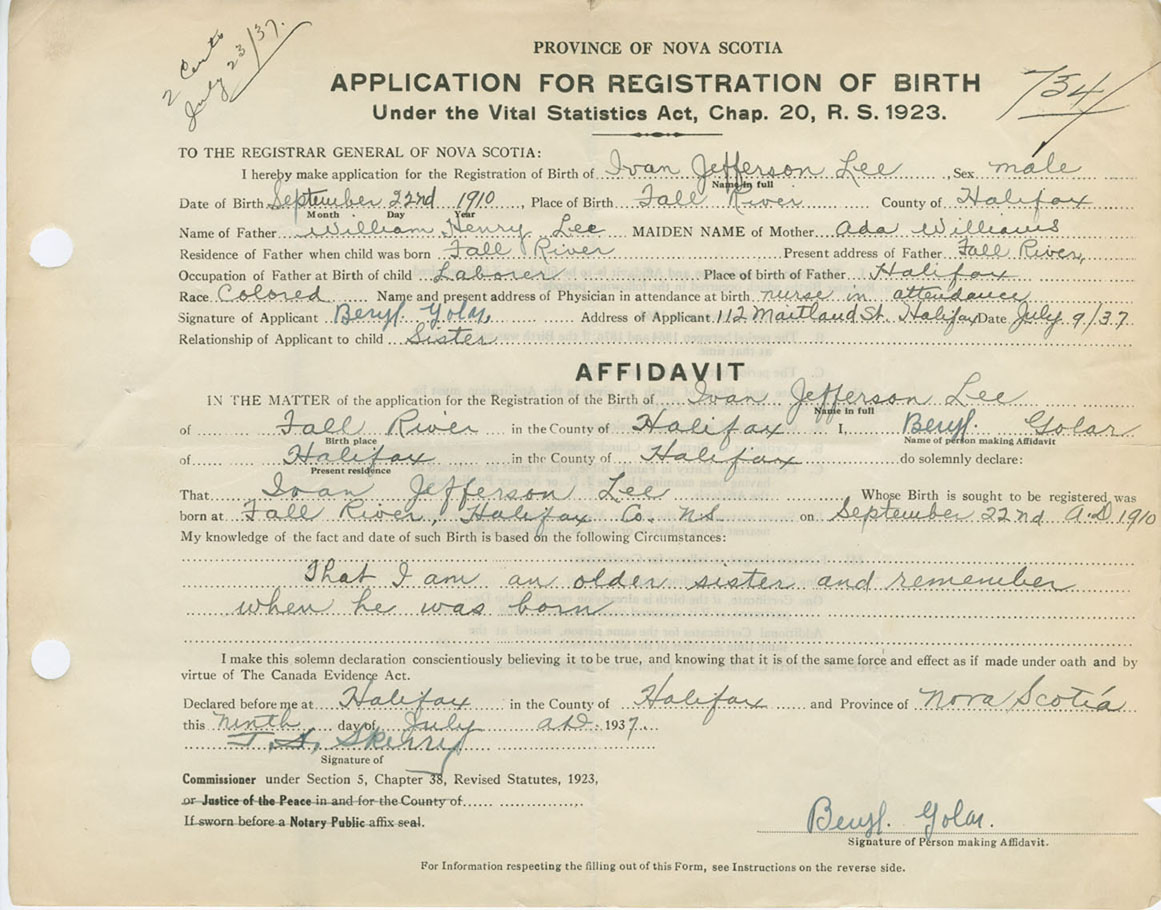 2 Certs
July 23/37.
PROVINCE OF NOVA SCOTIA
APPLICATION FOR REGISTRATION OF BIRTH
734
Under the Vital Statistics Act, Chap. 20, R. S. 1923.
TO THE REGISTRAR GENERAL OF NOVA SCOTIA:
I hereby make application for the Registration of Birth of Ivan Jefferson Lee, Sex male
Name in full
Date of Birth September 22nd 1910, Place of Birth Fall River County of Halifax
Month Day Year
Name of Father William Henry Lee MAIDEN NAME of Mother Ada Williams
Residence of Father when child was born Fall River Present address of Father Fall River,
Occupation of Father at Birth of child Laborer Place of birth of Father Halifax
Race Colored Name and present address of Physician in attendance at birth nurse in attendance
Signature of Applicant Beryl Golar, Address of Applicant 112 Maitland St. Halifax Date July 9/37
Relationship of Applicant to child Sister
AFFIDAVIT
IN THE MATTER of the application for the Registration of the Birth of Ivan Jefferson Lee
Name in full
of Fall River in the County of Halifax I, Beryl. Golar
Birth place Name of person making Affidavit
of Halifax in the County of Halifax do solemnly declare:
Present residence
That Ivan Jefferson Lee Whose Birth is sought to be registered was
born at Fall River, Halifax Co. N.S. on September 22nd A.D 1910
My knowledge of the fact and date of such Birth is based on the following Circumstances:
That I am an older sister and remember
when he was born
I make this solemn declaration conscientiously believing it to be true, and knowing that it is of the same force and effect as if made under oath and by
virtue of The Canada Evidence Act.
Declared before me at Halifax in the County of Halifax and Province of Nova Scotia
this ninth day of July A.D. 1937.
Signature of
Commissioner under Section 5, Chapter 38, Revised Statutes, 1923,
or Justice of the Peace in and for the County of
If sworn before a Notary Public affix seal.
Beryl. Golar.
Signature of Person making Affidavit.
For Information respecting the filling out of this Form, see Instructions on the reverse side.